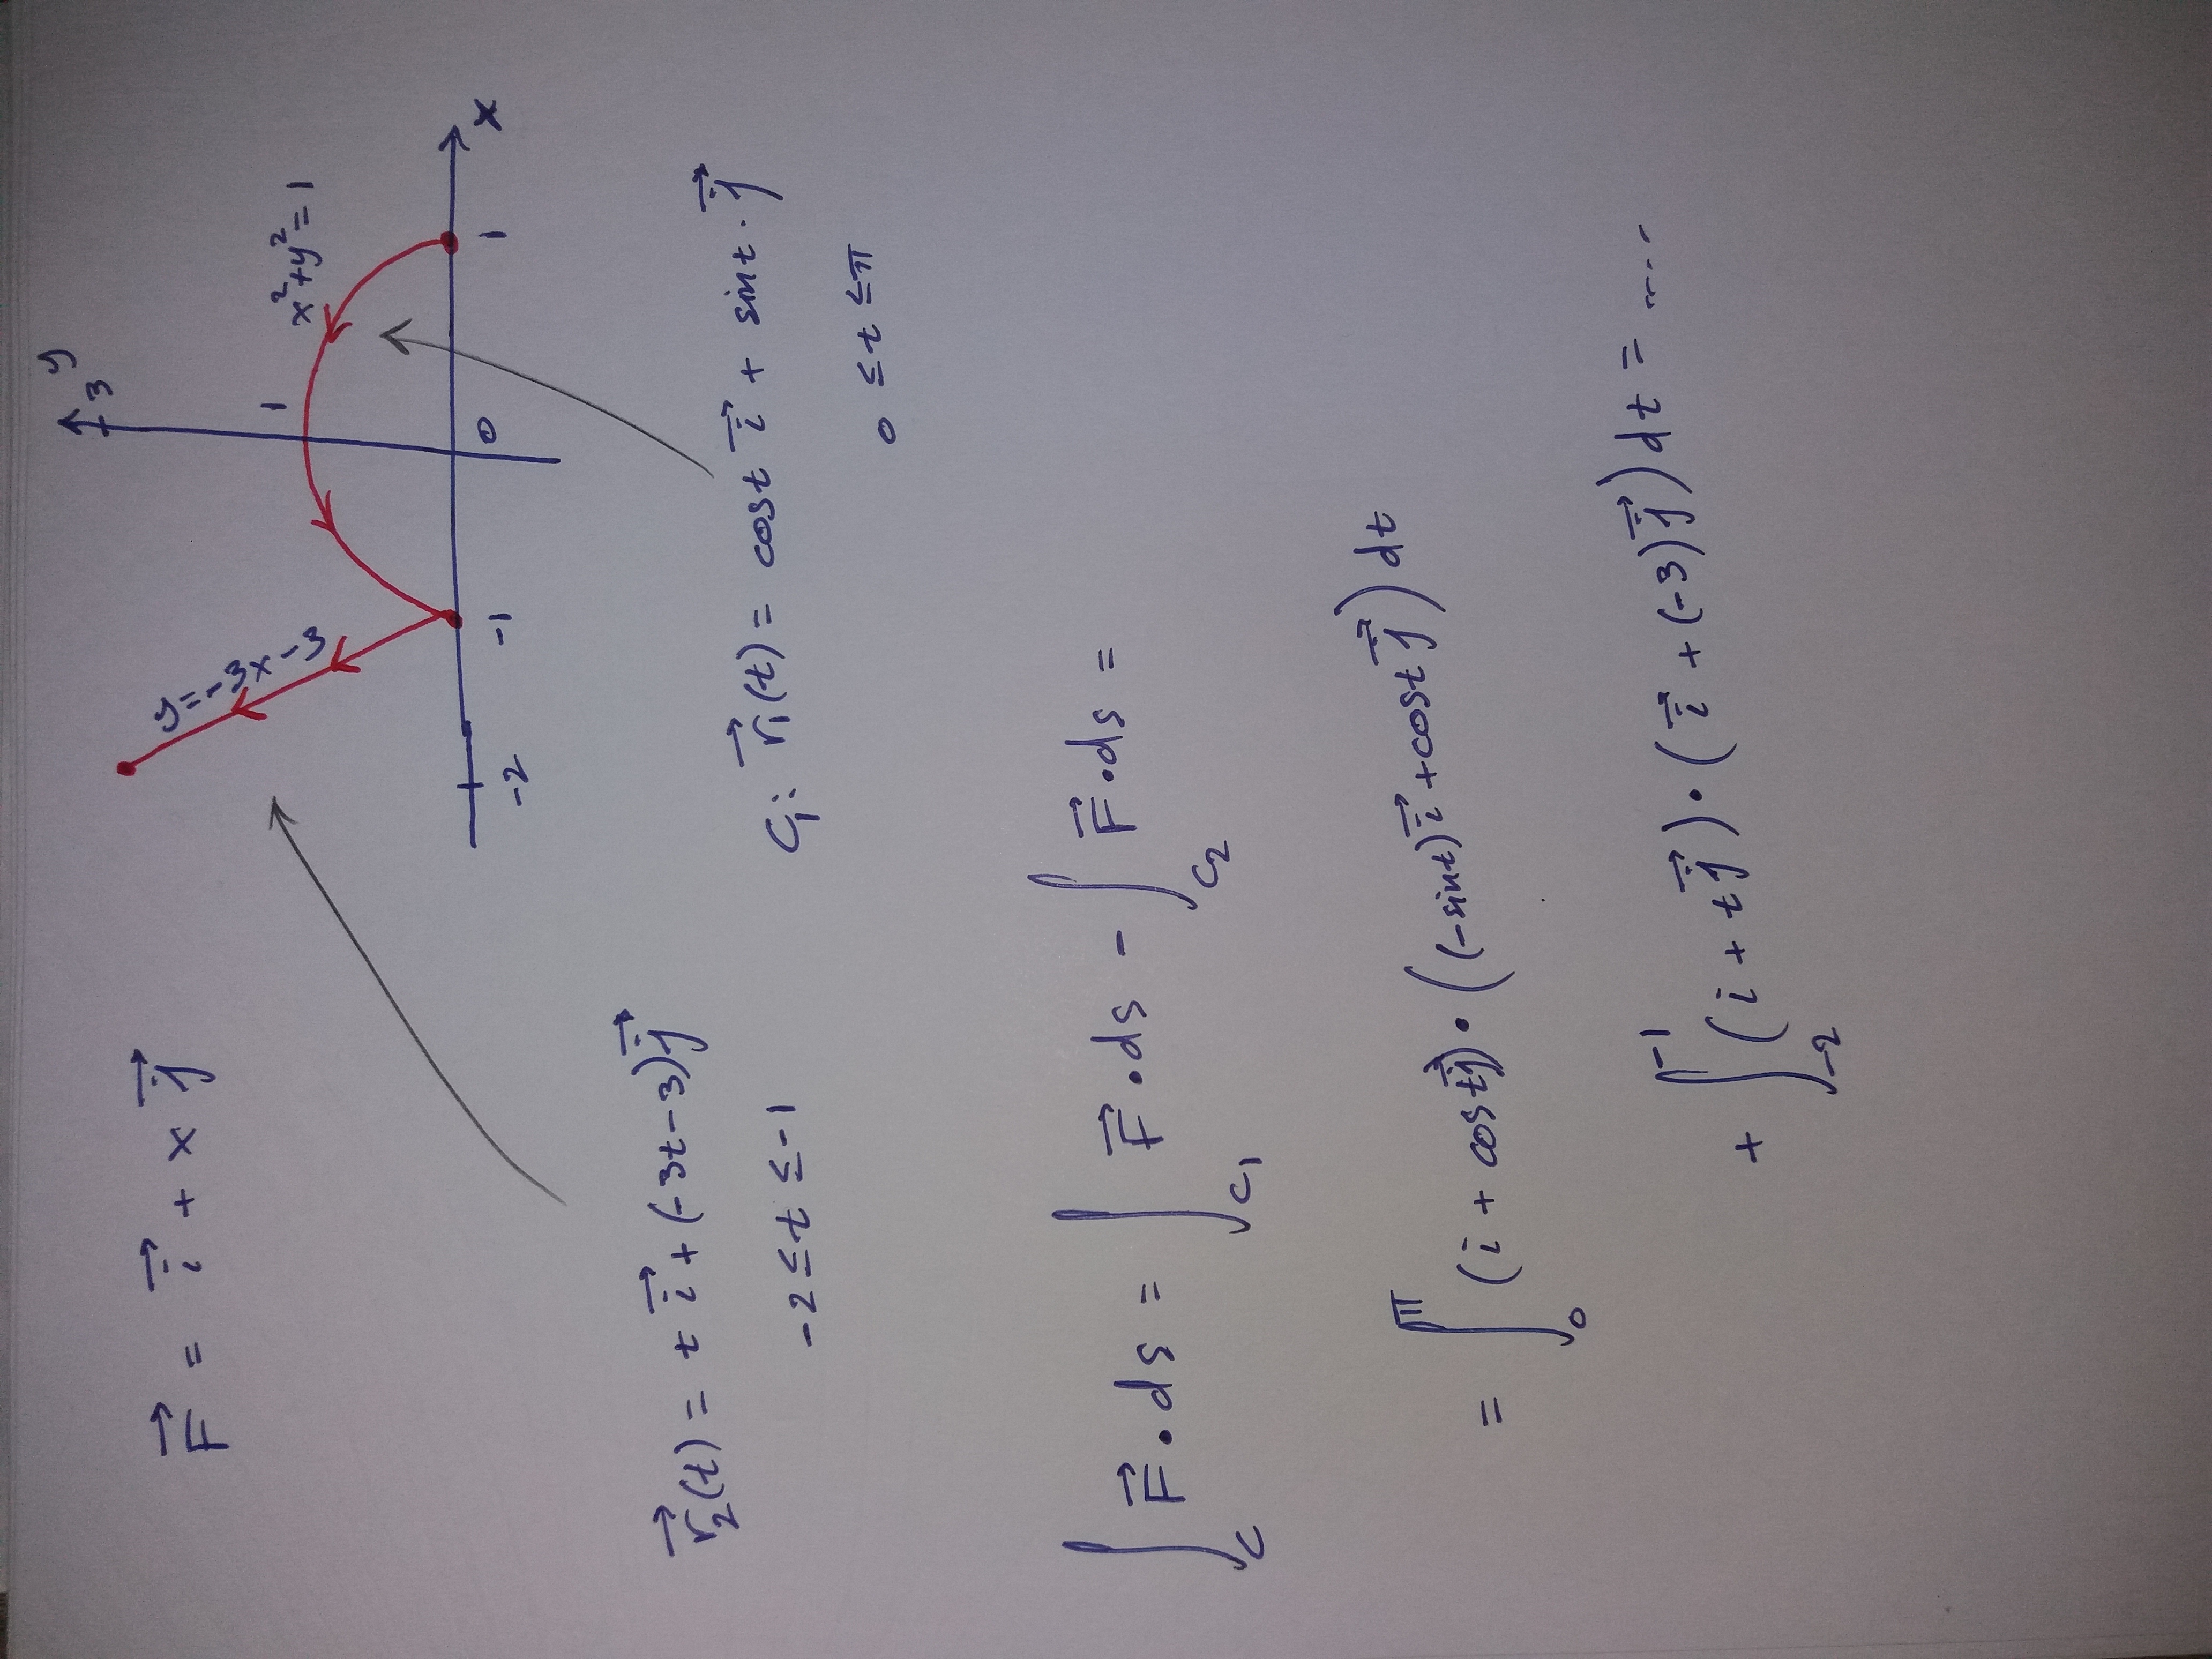 F⃗ = i⃗ + x j⃗
y
3
1
x²+y²=1
y=-3x-3
-2
-1
0
1
x
r⃗₂(t) = t i⃗ + (-3t-3)j⃗
-2 ≤ t ≤ -1
C₁: r⃗₁(t) = cost i⃗ + sint · j⃗
0 ≤ t ≤ π
∫_C F⃗ • ds = ∫_C₁ F⃗ • ds - ∫_C₂ F⃗ • ds =
= ∫₀^π (i + cost j⃗) • ((-sint) i⃗ + cost j⃗) dt
+ ∫₋₂^-1 (i + t j⃗) • (i⃗ + (-3) j⃗) dt = ....